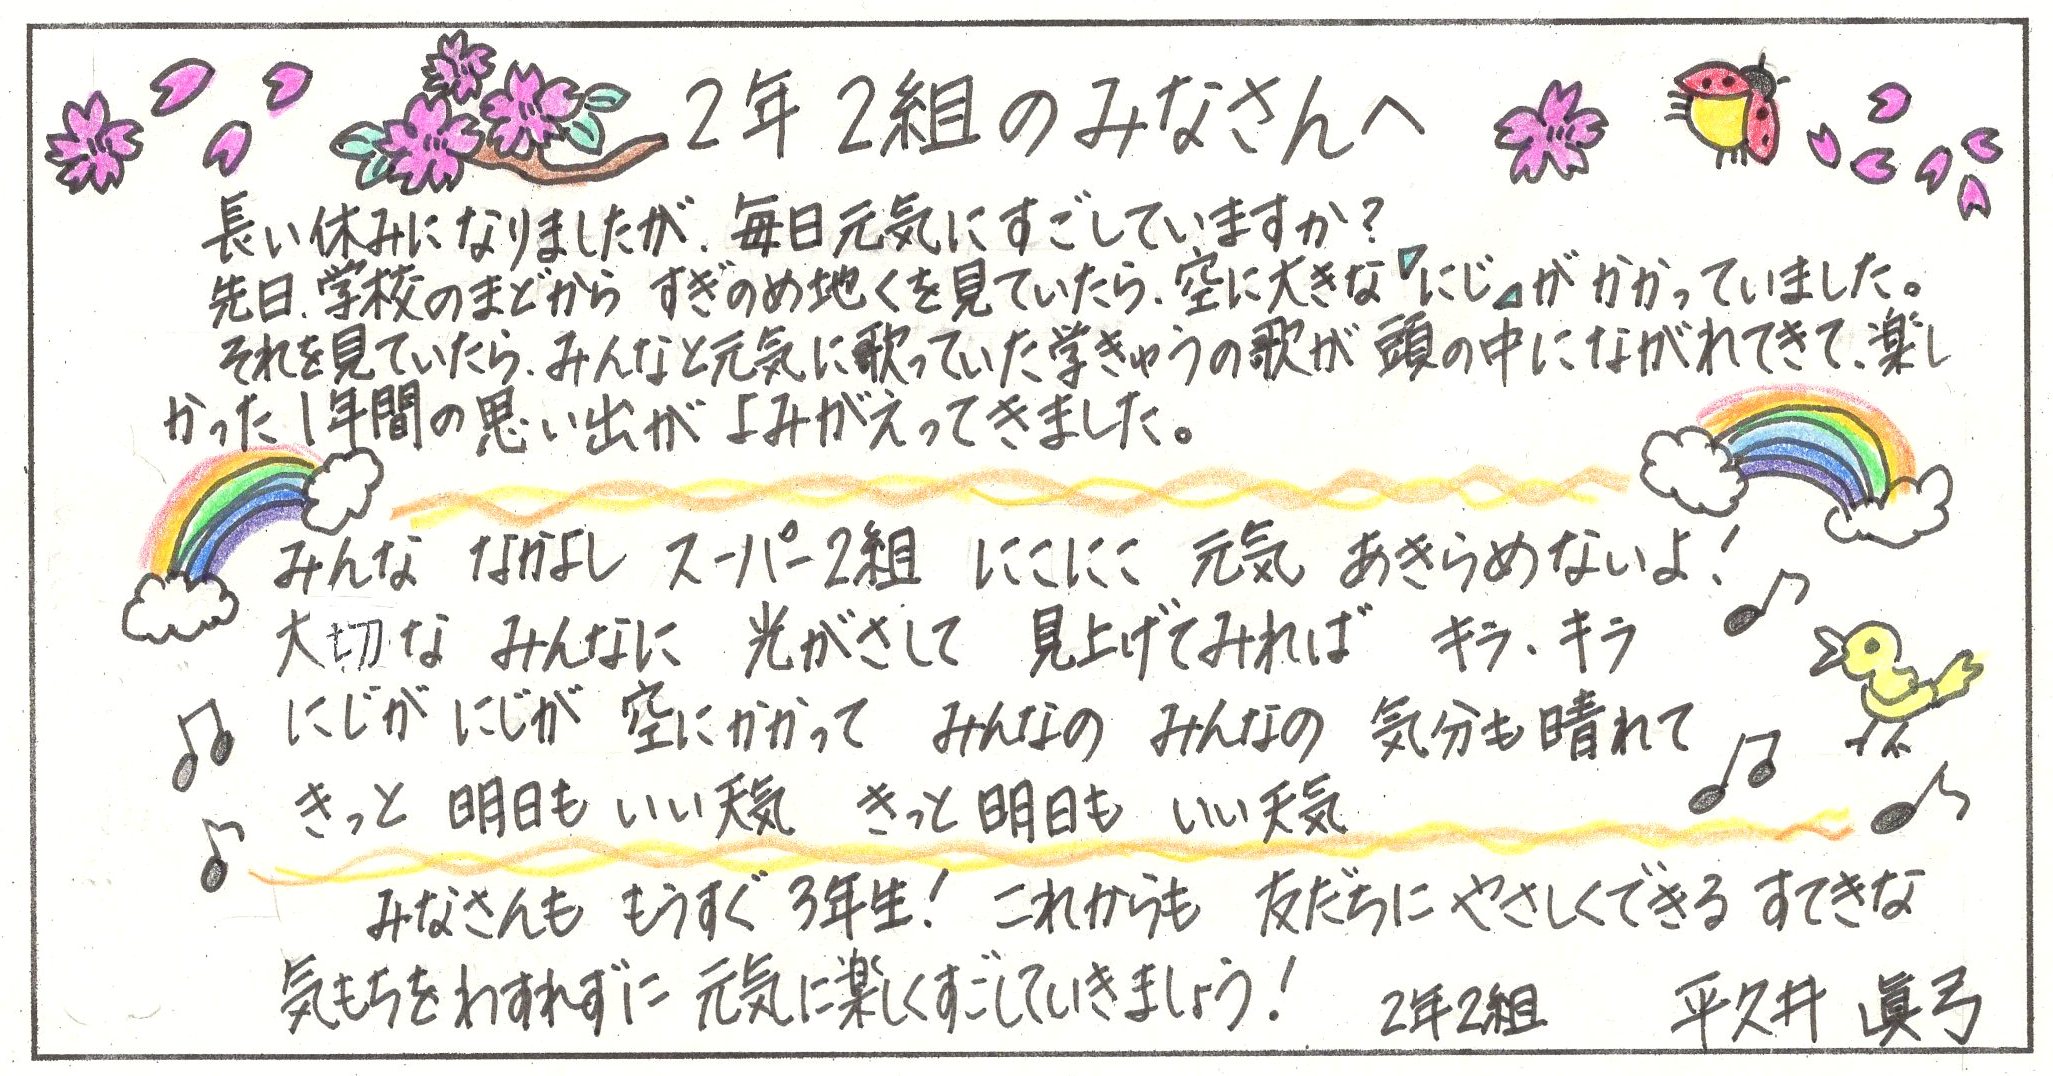 2年2組のみなさんへ
長い休みになりましたが、毎日元気にすごしていますか?
先日、学校のまどから すぎのめ地くを見ていたら、空に大きな『にじ』がかかっていました。
それを見ていたら、みんなと元気に歌っていた学きゅうの歌が頭の中にながれてきて、楽し
かった1年間の思い出がよみがえってきました。
みんな なかよし スーパー2組 にこにこ 元気 あきらめないよ!
大切な みんなに 光がさして 見上げてみれば キラ、キラ
にじが にじが 空にかかって みんなの みんなの 気分も晴れて
きっと 明日も いい天気 きっと 明日も いい天気
みなさんも もうすぐ 3年生! これからも 友だちに やさしくできる すてきな
気もちをわすれずに 元気に楽しくすごしていきましょう!
2年2組 平久井 眞弓